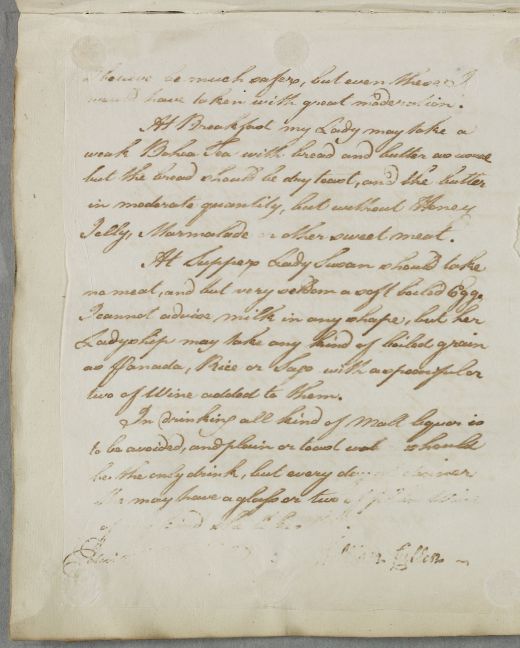 believe be much safer, but even these I
would have taken with great moderation.
At Breakfast my Lady may take a
weak Bohea Tea with bread and butter as usual
but the bread should be dry toast, and the butter
in moderate quantity, but without Honey
Jelly, Marmalade or other sweet meat.
At Supper Lady Susan should take
no meat, and but very seldom a soft boiled Egg.
I cannot advise milk in any shape, but her
Ladyship may take any kind of boiled grain
as Panada, Rice or Sago with a spoonful or
two of Wine added to them.
In drinking all kind of Malt liquor is
to be avoided, and plain or toast wat should
be the only drink, but every day dinner
may have a glass or two of Wine
of kind
Cullen